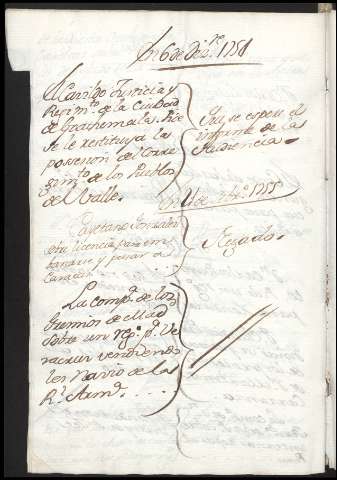 En 6 de Diz.re 1751
El Cavildo Justicia y
Regim.to de la Ciudad
de Goathemala: Pide
se le restituya la
posesion del Corre
gim.to de los Pueblos
del Valle.
Que se espere el
informe de la
Audiencia.
1755
Cayetano Gonzalez
licencia para em
barcarse y pasar a
Caracas.
Negado.
La comp.a de los
Gremios de Mad
sobre un reg.o p.a Ve
racruz vendiendo
les Navio de la
R.l Arm.a